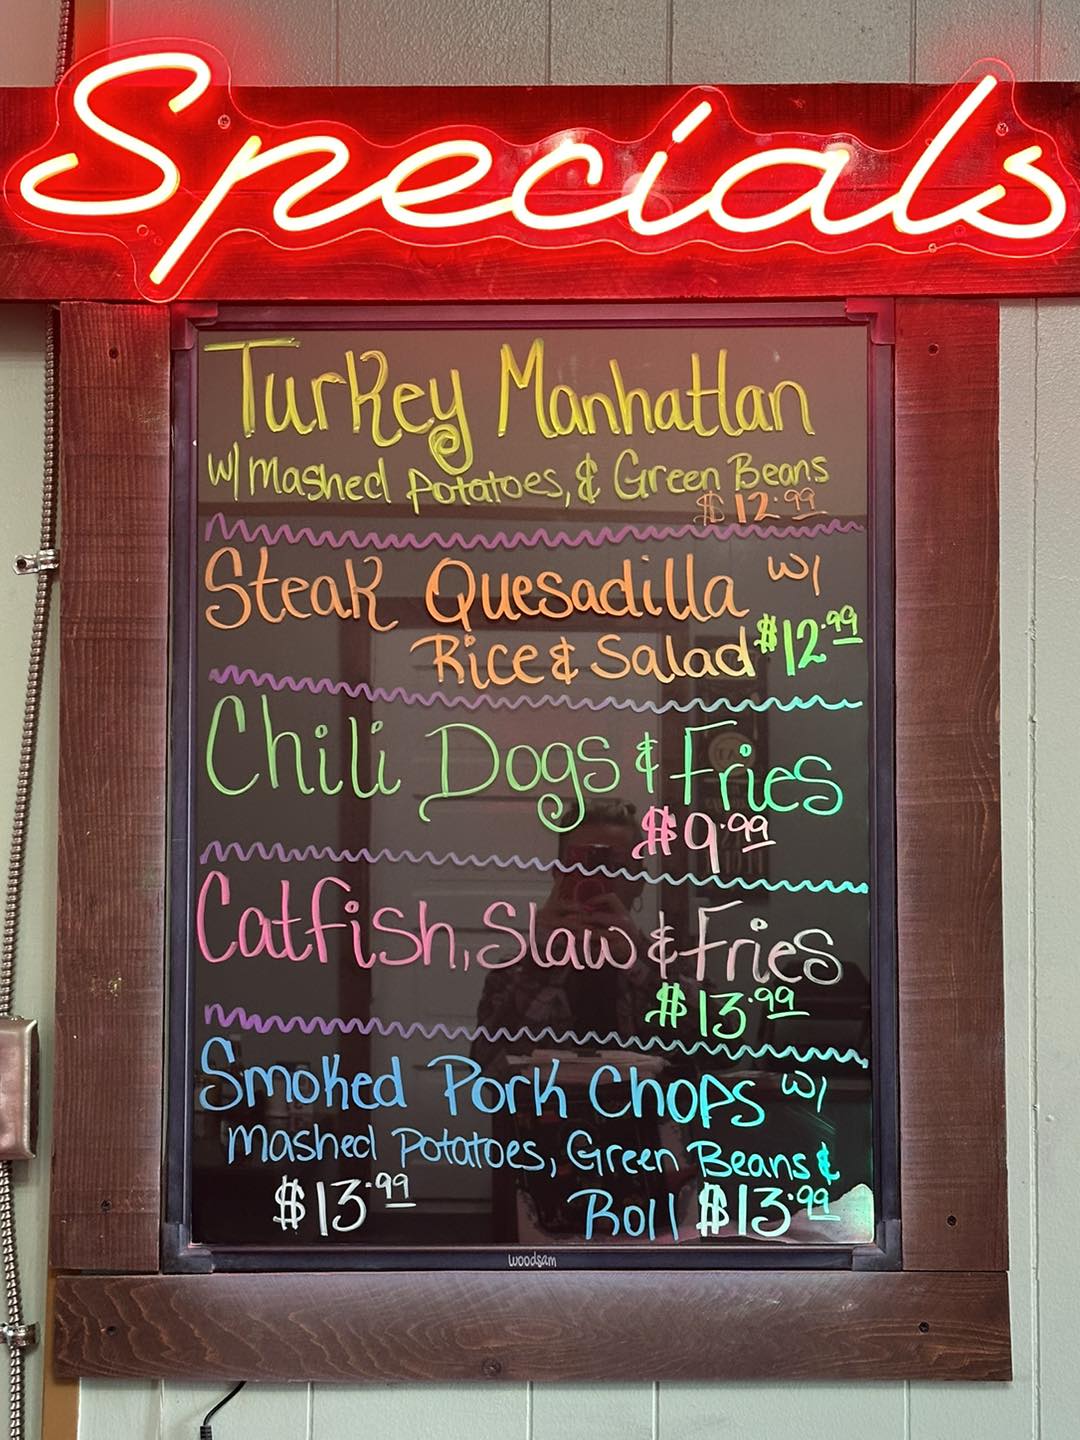 Specials
Turkey Manhattan
w/ mashed Potatoes, & Green Beans
$12.99
Steak Quesadilla w/
Rice & Salad $12.99
Chili Dogs & Fries
$9.99
Catfish, Slaw & Fries
$13.99
Smoked Pork Chops w/
mashed Potatoes, Green Beans &
$13.99 Roll $13.99
woodsam